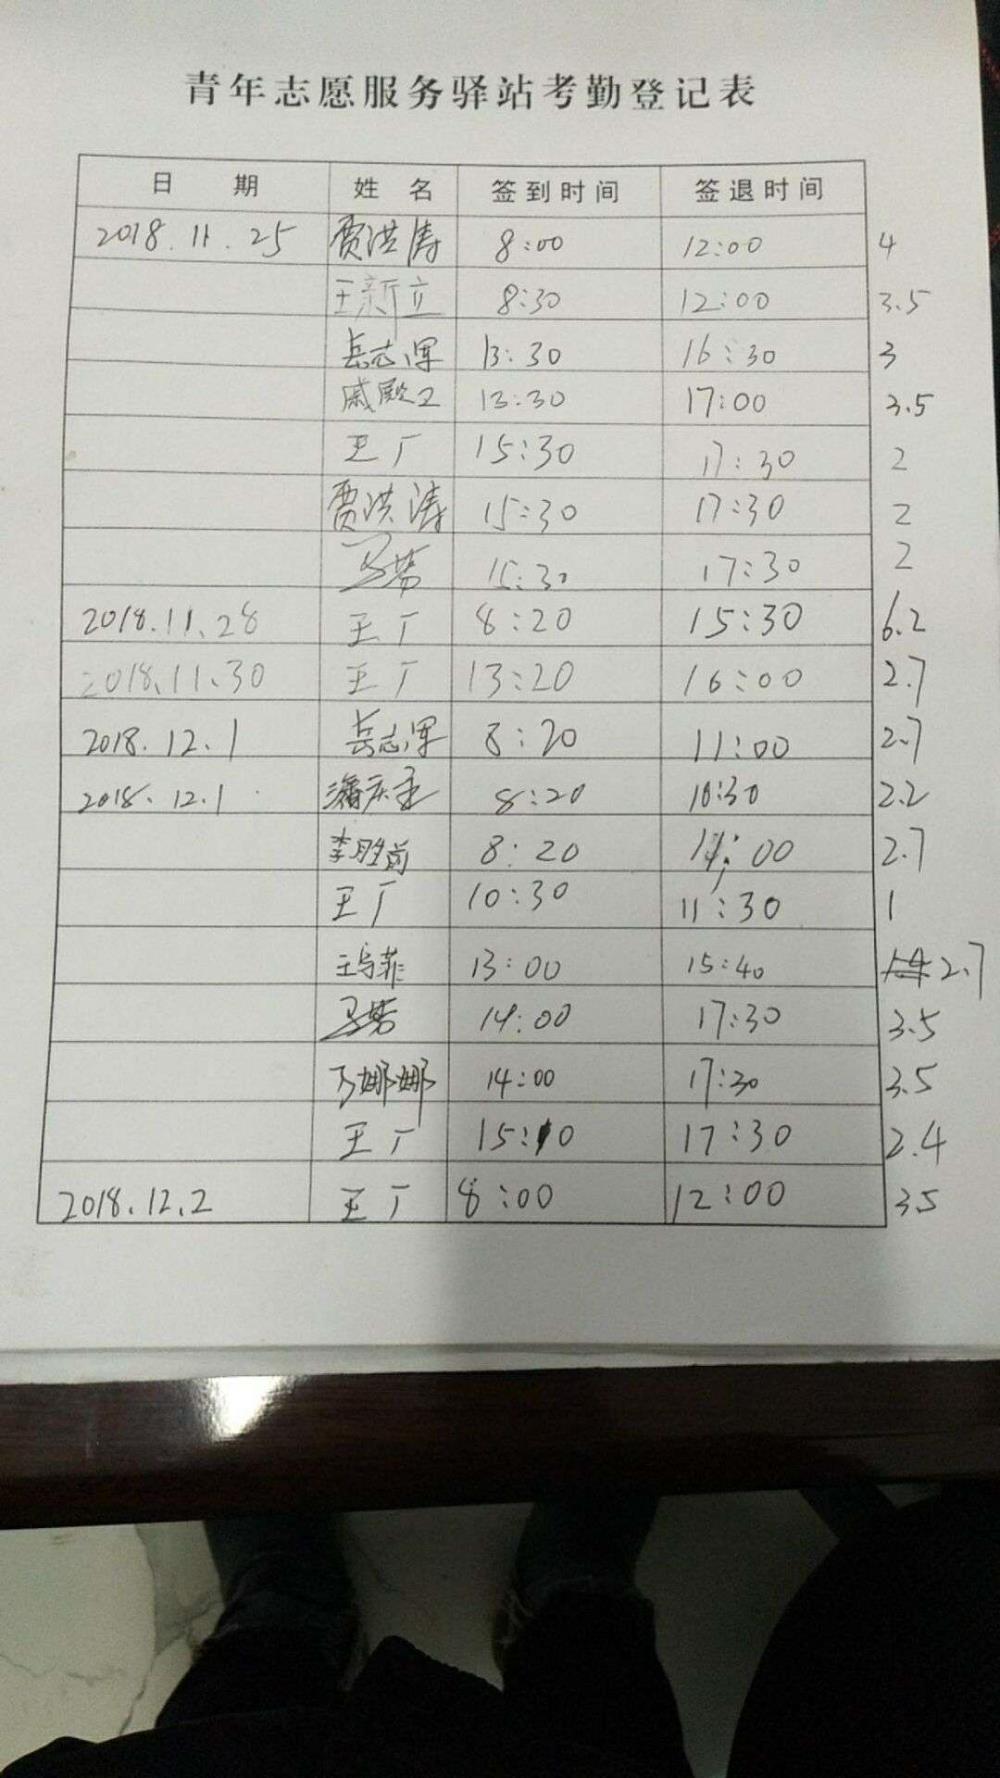 青年志愿服务驿站考勤登记表
日 期 姓 名 签到时间 签退时间
2018.11.25 贾洪涛 8:00 12:00 4
王新立 8:30 12:00 3.5
岳志军 13:30 16:30 3
戚殿卫 13:30 17:00 3.5
王厂 15:30 17:30 2
贾洪涛 15:30 17:30 2
15:30 17:30 2
2018.11.28 王厂 8:20 15:30 6.2
2018.11.30 王厂 13:20 16:00 2.7
2018.12.1 岳志军 8:20 11:00 2.7
2018.12.1 8:20 10:30 2.2
李胜前 8:20 11:00 2.7
王厂 10:30 11:30 1
13:00 15:40 2.7
14:00 17:30 3.5
娜娜 14:00 17:30 3.5
王厂 15:10 17:30 2.4
2018.12.2 王厂 8:00 12:00 3.5